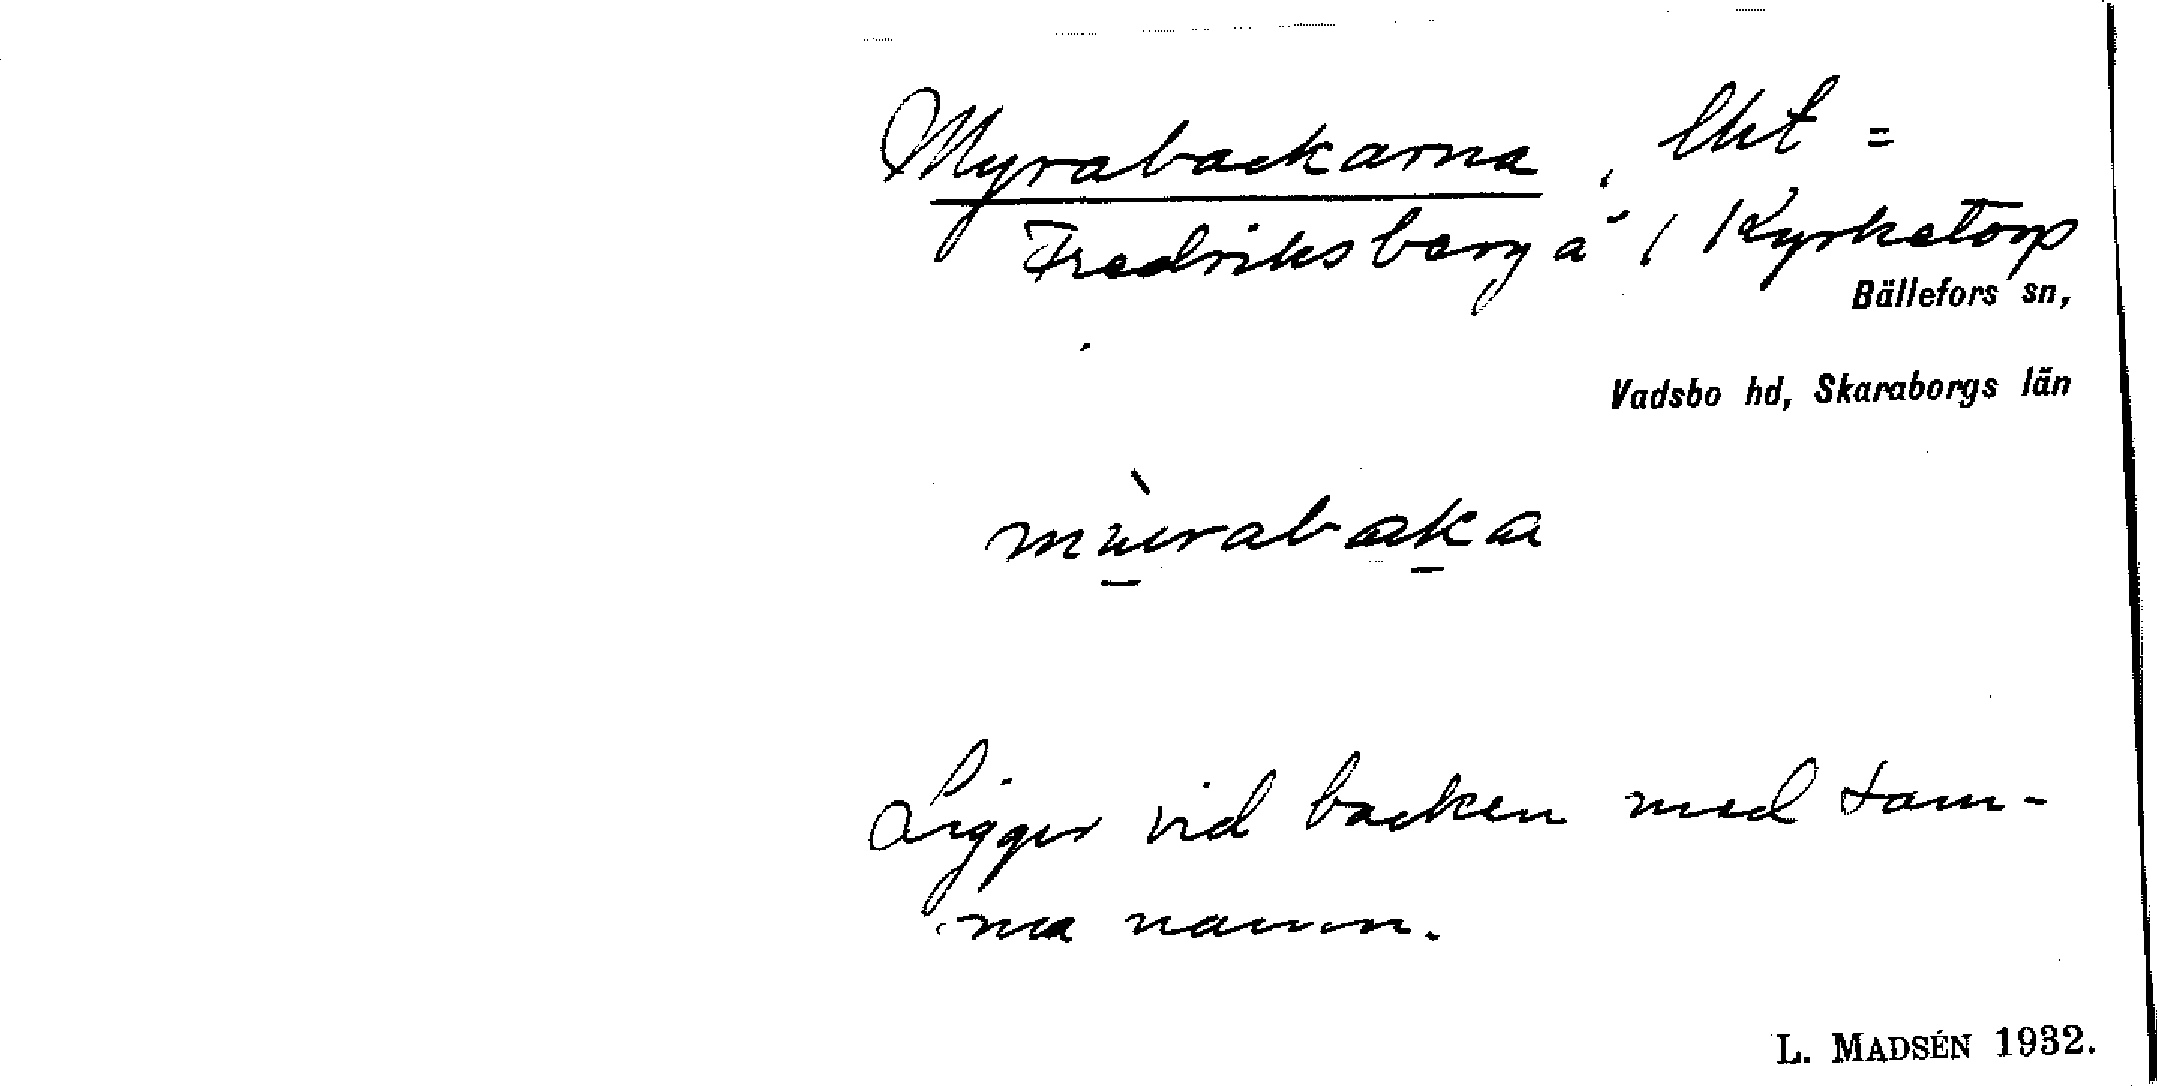 Myrabackarna, lht =
Fredriksberg å / Kyrketorp
Bällefors sn,
Vadsbo hd, Skaraborgs län
Ligger vid backen med sam-
ma namn.
L. MADSÉN 1932.